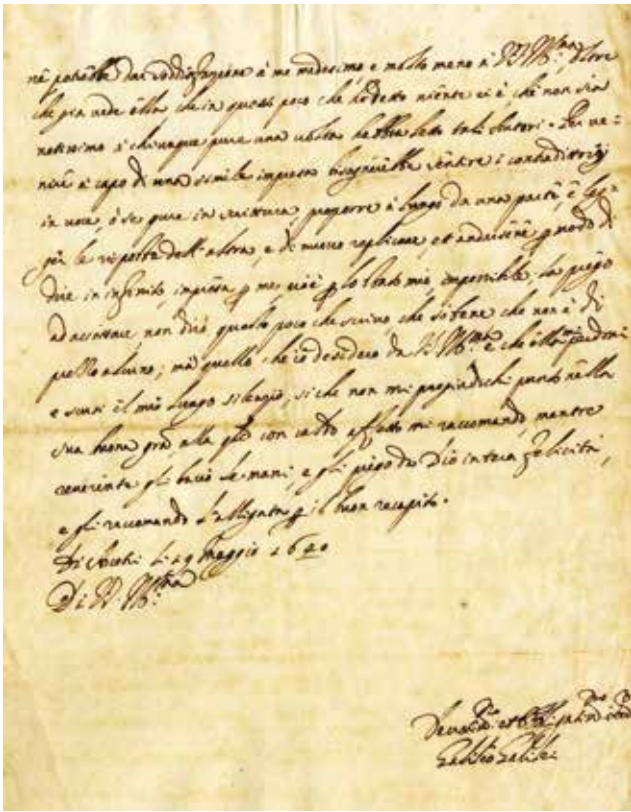 nè potrebbe dar soddisfazione à me medesimo, e molto meno à V. S. Ill.ma
che già vede ella che in questo poco che hò detto niente vi è, che non sia
notissimo à chiunque pure una volta habbia letto tali Autori. Per ve=
nire à capo di una simile impresa bisognerebbe sentire i contradittorij
in voce, ò se pure in scrittura, proporre à lungo da una parte, e
poi le risposte dell'altra, e di nuovo replicare, et andarsene p modo di
dire in infinito, impresa p me, cioè p lo stato mio impossibile. La prego
ad accettare, non dirò questo poco che scrivo che sò bene che non è di
pregio alcuno; mà quello che io desidero da V. S. Ill.ma è che ella mi perdoni
e scusi il mio lungo silenzio, si che non mi pregiudichi punto nella
sua buona gra, alla quale con caldo affetto mi raccomando, mentre
reverente gli bacio le mani, e gli prego da Dio intera felicità,
e gli raccomando l'alligata p il buon recapito.
Di Arcetri li 29 Maggio 1640
Di V. S. Ill.ma
Galileo Galilei